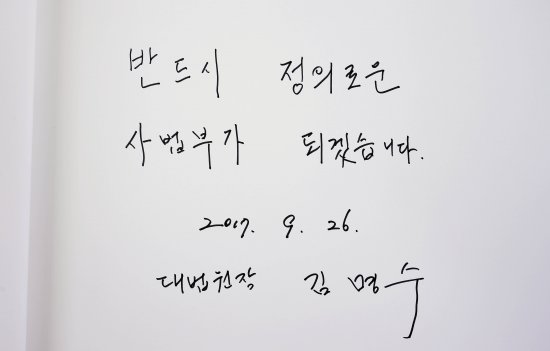 반드시 정의로운
사법부가 되겠습니다.
2017. 9. 26.
대법원장 김명수